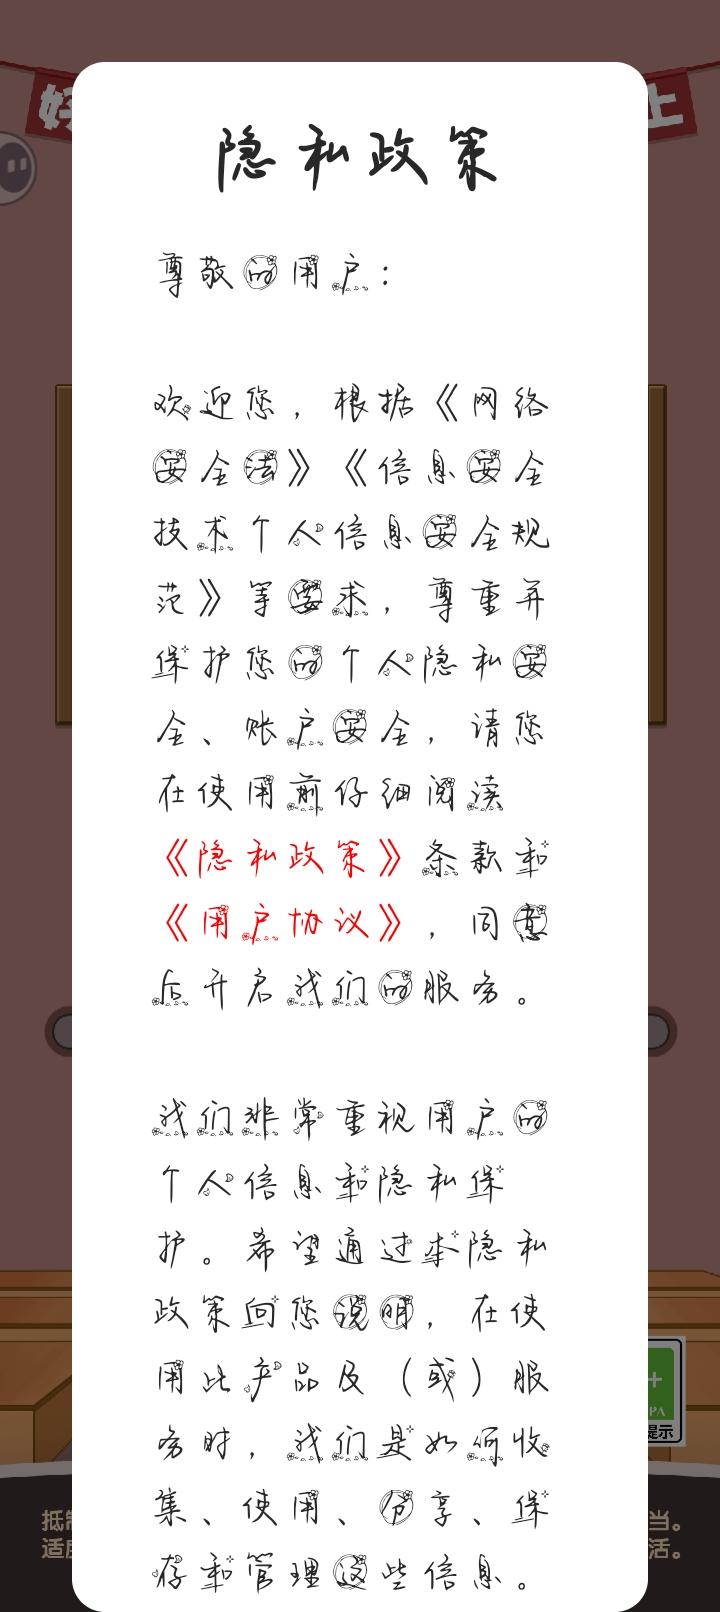 好
上
隐私政策
尊敬的用户：
欢迎您，根据《网络
安全法》《信息安全
技术个人信息安全规
范》等要求，尊重并
保护您的个人隐私安
全、账户安全，请您
在使用前仔细阅读
《隐私政策》条款和
《用户协议》，同意
后开启我们的服务。
我们非常重视用户的
个人信息和隐私保
护。希望通过本隐私
政策向您说明，在使
用此产品及（或）服
务时，我们是如何收
集、使用、分享、保
存和管理这些信息。
PA
提示
抵制
当。
适度
活。